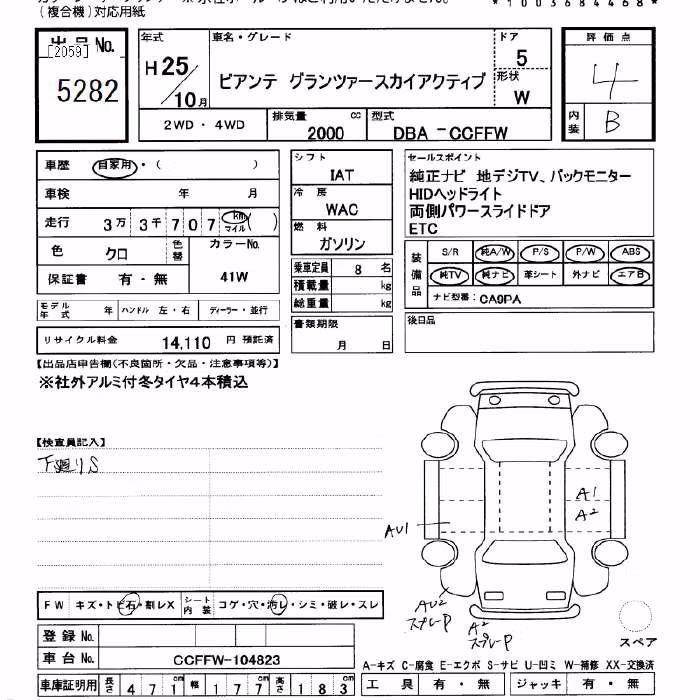 (複合機)対応用紙
*1003684468*
出品 No.
[2059]
5282
年式
H25/10月
車名・グレード
ビアンテ グランツァースカイアクティブ
ドア
5
形状
W
評価点
4
内装
B
2WD・4WD
排気量 cc
2000
型式
DBA-CCFFW
車歴 自家用・( )
車検 年 月
走行 3万 3千 7 0 7 km マイル ( )
色 クロ 色替 カラーNo.
保証書 有・無 41W
モデル年式 年 ハンドル 左・右 ディーラー・並行
リサイクル料金 14,110 円 預託済
シフト
IAT
冷房
WAC
燃料
ガソリン
乗車定員 8 名
積載量 kg
総重量 kg
書類期限
月 日
セールスポイント
純正ナビ 地デジTV、バックモニター
HIDヘッドライト
両側パワースライドドア
ETC
装備品
S/R 純A/W P/S P/W ABS
純TV 純ナビ 革シート 外ナビ エアB
ナビ型番: CA9PA
後日品
【出品店申告欄(不良箇所・欠品・注意事項等)】
※社外アルミ付冬タイヤ4本積込
【検査員記入】
下廻りS
A1
A2
AU1
AU2
スプレーP
A2
スプレーP
スペア
FW キズ・トビ石・割レX シート内装 コゲ・穴・汚レ・シミ・破レ・スレ
登録 No.
車台 No. CCFFW-104823
A-キズ C-腐食 E-エクボ S-サビ U-凹ミ W-補修 XX-交換済
車庫証明用 長さ 471cm 幅 177cm 高さ 183cm
工具 有・無 ジャッキ 有・無